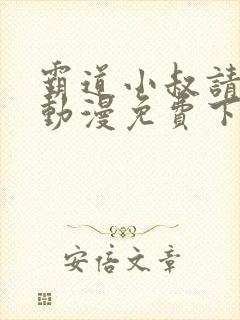 霸道小叔請
動漫免費下
安倍文章